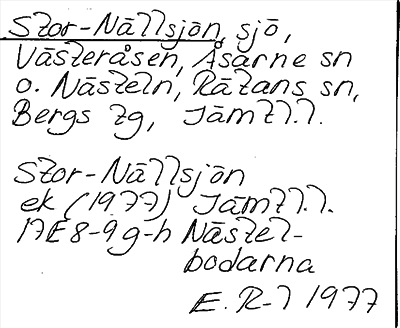 Stor-Nällsjön, sjö,
Västeråsen, Åsarne sn
o. Nästeln, Rätans sn,
Bergs tg, Jämtl.l.
Stor-Nällsjön
ek (1977) Jämtl.l.
17E 8-9g-h Nästel-
bodarna
E.R-l 1977